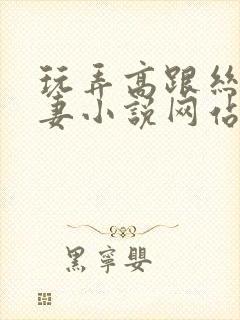 玩弄高跟丝
妻小说网佔
黑寧嬰